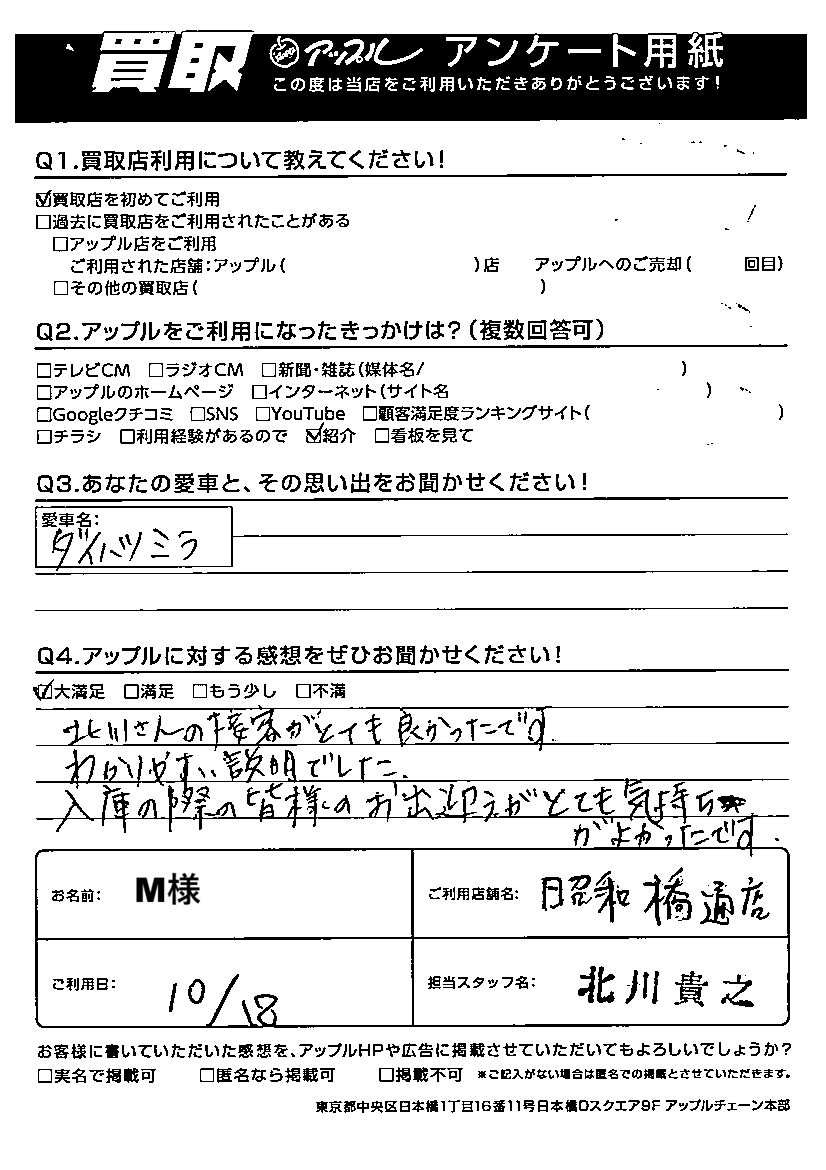 買取 アップル アンケート用紙
この度は当店をご利用いただきありがとうございます!
Q1.買取店利用について教えてください!
☑買取店を初めてご利用
□過去に買取店をご利用されたことがある
□アップル店をご利用
ご利用された店舗:アップル( )店 アップルへのご売却( 回目)
□その他の買取店( )
Q2.アップルをご利用になったきっかけは?(複数回答可)
□テレビCM □ラジオCM □新聞・雑誌(媒体名/ )
□アップルのホームページ □インターネット(サイト名 )
□Googleクチコミ □SNS □YouTube □顧客満足度ランキングサイト( )
□チラシ □利用経験があるので ☑紹介 □看板を見て
Q3.あなたの愛車と、その思い出をお聞かせください!
愛車名:
ダイハツミラ
Q4.アップルに対する感想をぜひお聞かせください!
☑大満足 □満足 □もう少し □不満
北川さんの接客がとても良かったです.
わかりやすい説明でした.
入庫の際の皆様のお出迎えがとても気持ち
がよかったです.
お名前: M様 ご利用店舗名: 昭和橋通店
ご利用日: 10/18 担当スタッフ名: 北川貴之
お客様に書いていただいた感想を、アップルHPや広告に掲載させていただいてもよろしいでしょうか?
□実名で掲載可 □匿名なら掲載可 □掲載不可 ※ご記入がない場合は匿名での掲載とさせていただきます。
東京都中央区日本橋1丁目16番11号日本橋Dスクエア9F アップルチェーン本部